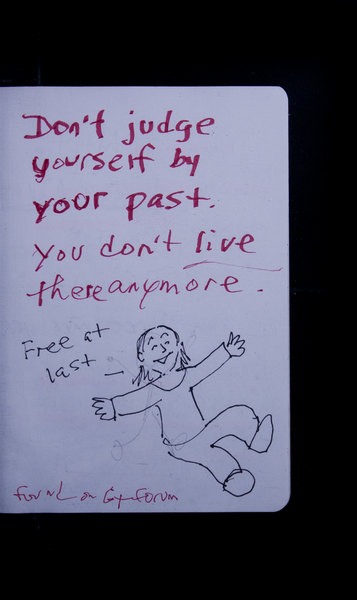 Don't judge
yourself by
your past.
You don't live
there anymore.
Free at
last
on Gym Forum